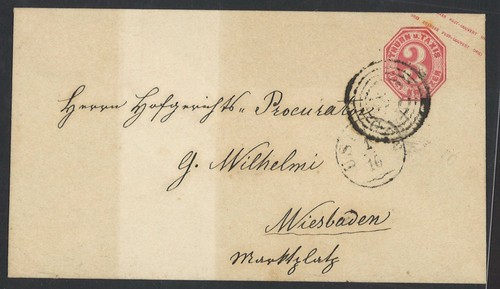 THURN u. TAXIS
3
Herrn Hofgerichts-Procurator
G. Wilhelmi
Wiesbaden
Marktplatz